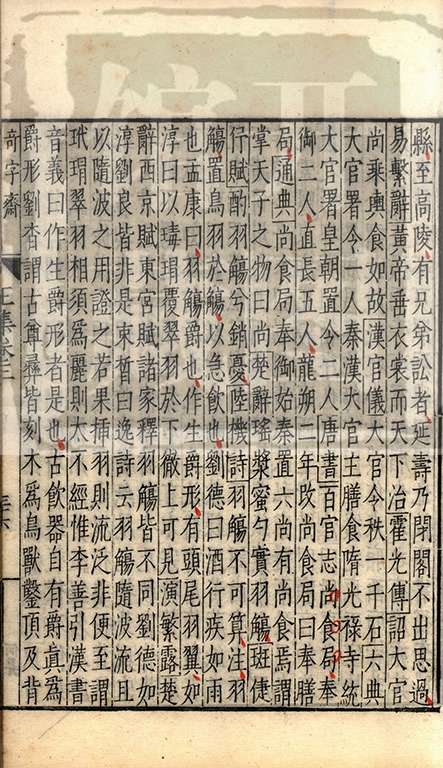 縣至高陵有兄弟訟者延壽乃閉閣不出思過
易繫辭黃帝垂衣裳而天下治霍光傳詔大官
尚乘輿食如故漢官儀大官令秩一千石六典
大官署令一人秦漢大官主膳食隋光祿寺統
大官署皇朝置令二人唐書百官志尚食局奉
御二人直長五人龍朔二年改尚食局曰奉膳
局通典尚食局奉御始秦置六尚有尚食焉謂
掌天子之物曰尚楚辭瑤漿蜜勺實羽觴班倢
伃賦酌羽觴兮銷憂陸機詩羽觴不可算注羽
觴置鳥羽於觴以急飲也劉德曰酒行疾如雨
也孟康曰羽觴爵也作生爵形有頭尾羽翼如
淳曰以瑇瑁覆翠羽於下徹上可見演繁露楚
辭西京賦東宮賦諸家釋羽觴皆不同劉德如
淳劉良皆非是束晳曰逸詩云羽觴隨波流且
以隨波之用證之若果揷羽則流泛非便至謂
玳瑁翠羽相須爲麗則太不經惟李善引漢書
音義曰作生爵形者是也古飲器自有爵真爲
爵形劉杳謂古尊彝皆刻木爲鳥獸鑿頂及背
奇字齋